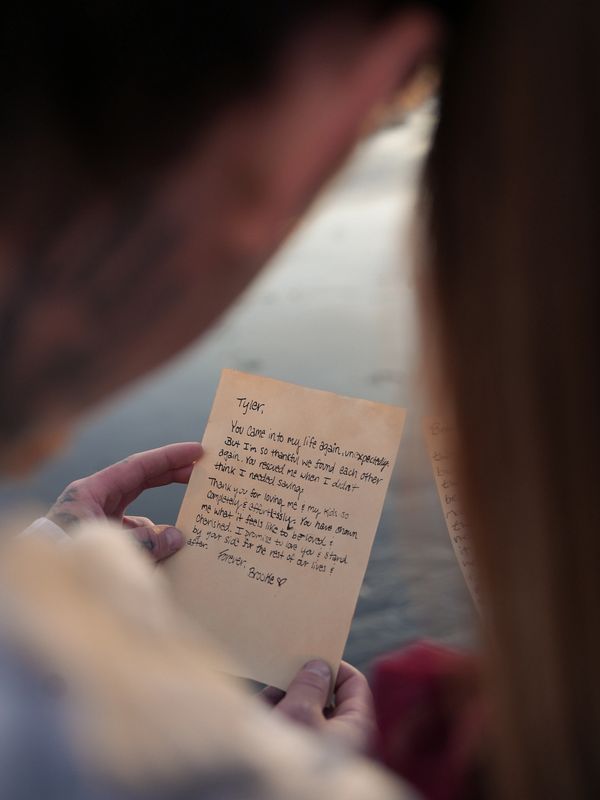 Tyler,
You came into my life again, unexpectedly.
But I'm so thankful we found each other
again. You rescued me when I didn't
think I needed saving.
Thank you for loving me & my kids so
completely & effortlessly. You have shown
me what it feels like to be loved &
cherished. I promise to love you & stand
by your side for the rest of our lives &
after.
Forever,
Brooke ♡